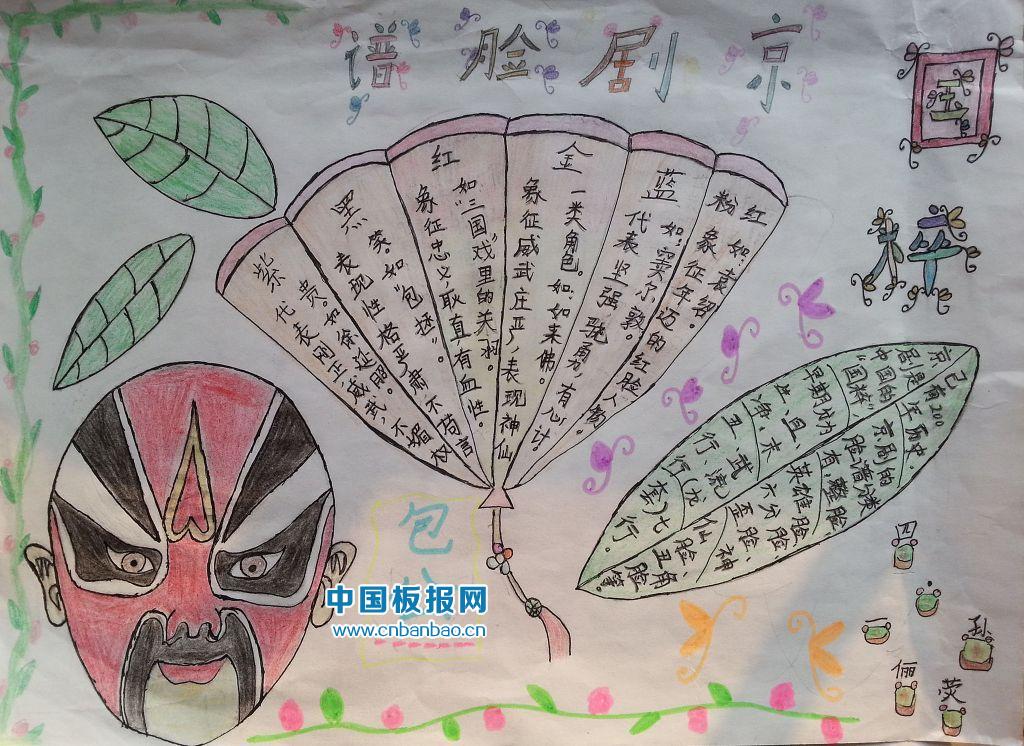 京剧脸谱
国
粹
粉红
象征年迈的红脸人物。
如袁绍。
蓝
代表坚强骁勇,有心计。
如:窦尔敦。
金
象征威武庄严,表现神仙
一类角色。如:如来佛。
红
象征忠义耿直有血性。
如“三国戏”里的关羽。
黑
表现性格严肃不苟言
笑,如“包拯”。
紫
代表刚正,威武,不媚权
贵。如徐延昭。
京剧是中国的“国粹”
已有200年历史。
生、旦、净、末、丑、武行、
七行。
京剧的脸谱分类有整脸、英雄脸、六分脸、歪脸、神仙脸、丑角脸等。
包公
中国板报网
www.cnbanbao.cn
四
一
孙
俪
荧